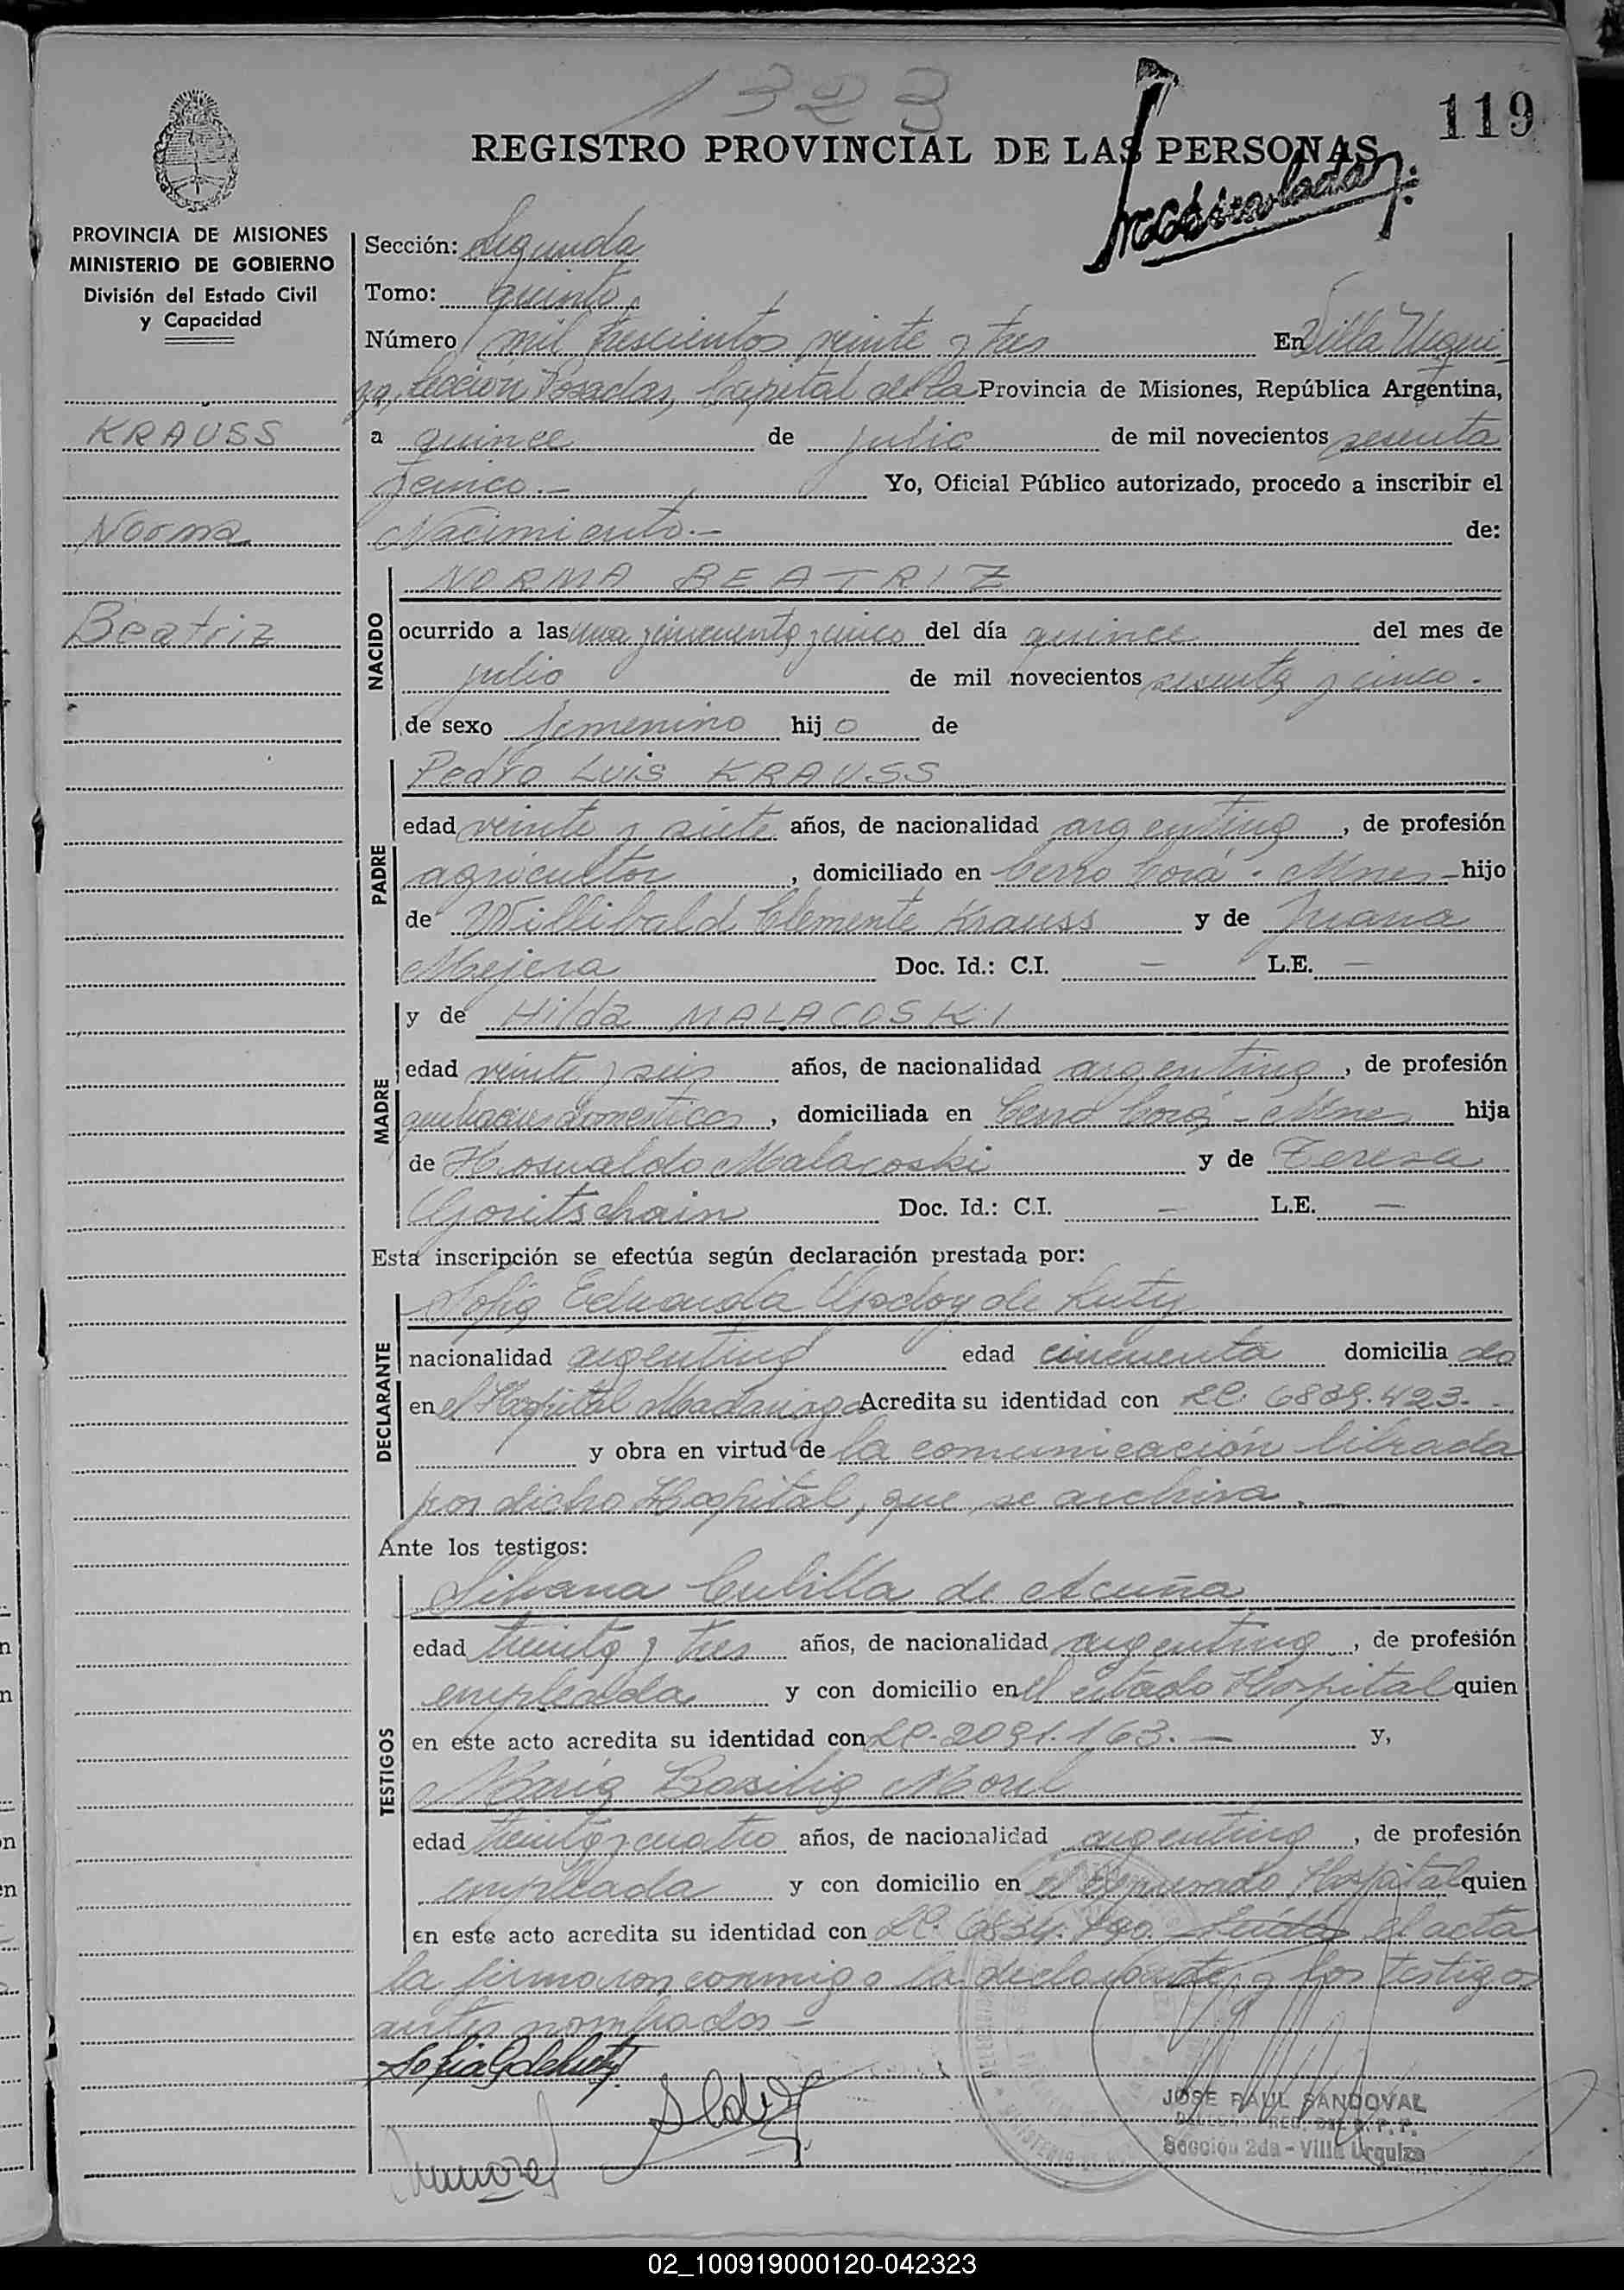 1323
119
REGISTRO PROVINCIAL DE LAS PERSONAS
PROVINCIA DE MISIONES
MINISTERIO DE GOBIERNO
División del Estado Civil
y Capacidad
KRAUSS
Norma
Beatriz
Sección: Segunda
Tomo: quinto.
Número mil trescientos veinte y tres En Villa Urqui-
za, Sección Posadas, Capital de la Provincia de Misiones, República Argentina,
a quince de julio de mil novecientos sesenta
y cinco.- Yo, Oficial Público autorizado, procedo a inscribir el
Nacimiento.- de:
NACIDO
NORMA BEATRIZ
ocurrido a las una y cincuenta y cinco del día quince del mes de
julio de mil novecientos sesenta y cinco.
de sexo femenino hijo de
PADRE
Pedro Luis KRAUSS
edad veinte y siete años, de nacionalidad argentina, de profesión
agricultor, domiciliado en Cerro Corá - Mnes - hijo
de Willibald Clemente Krauss y de Juana
Mejera Doc. Id.: C.I. — L.E. —
MADRE
y de Hilda MALACOSKI
edad veinte y seis años, de nacionalidad argentina, de profesión
quehaceres domesticos, domiciliada en Cerro Corá - Mnes hija
de Hoswaldo Malacoski y de Teresa
Goritschain Doc. Id.: C.I. — L.E. —
Esta inscripción se efectúa según declaración prestada por:
DECLARANTE
Sofia Eduarda Godoy de Luty
nacionalidad argentina edad cincuenta domicilia da
en el Hospital Madariaga Acredita su identidad con LC. 6839.423.-
y obra en virtud de la comunicación librada
por dicho Hospital, que se archiva.
Ante los testigos:
TESTIGOS
Silvana Cubilla de Acuña
edad treinta y tres años, de nacionalidad argentina, de profesión
empleada y con domicilio en el citado Hospital quien
en este acto acredita su identidad con LC. 2091.163.- y,
María Basilia Morel
edad treinta y cuatro años, de nacionalidad argentina, de profesión
empleada y con domicilio en el expresado Hospital quien
en este acto acredita su identidad con LC. Leída el acta
la firmaron conmigo la declarante, y los testigos
antes nombrados -
Sofia G de Luty
JOSE RAUL SANDOVAL
Sección 2da - Villa Urquiza
02_100919000120-042323